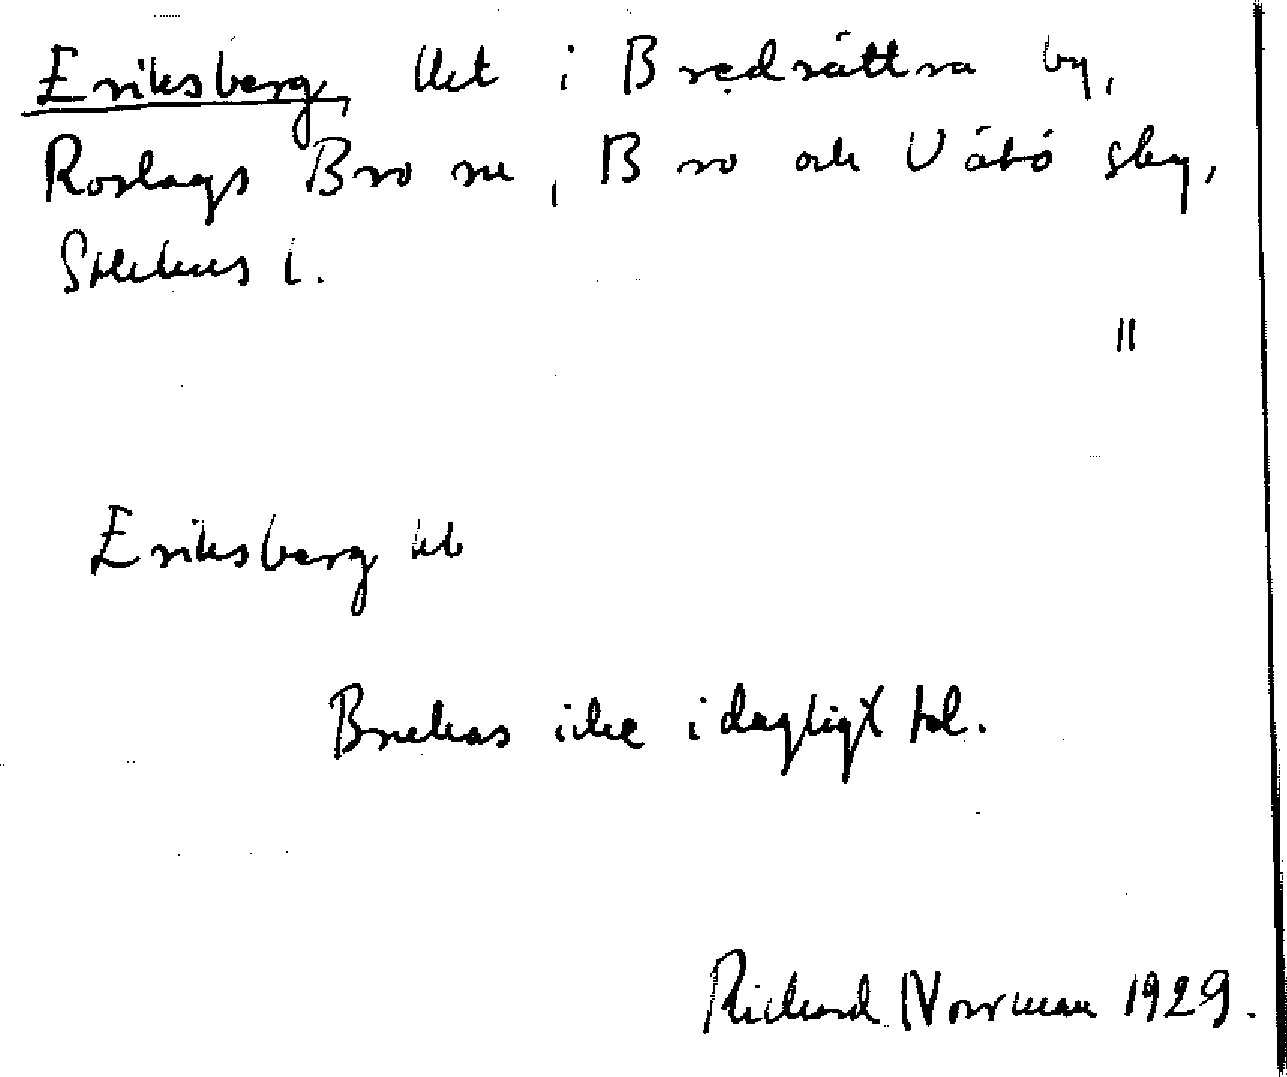 Eriksberg, lht i Bredsättra by,
Roslags Bro sn, Bro och Vätö skg,
Sthlms l.
"
Eriksberg
Brukas icke i dagligt tal.
Richard Norrman 1929.